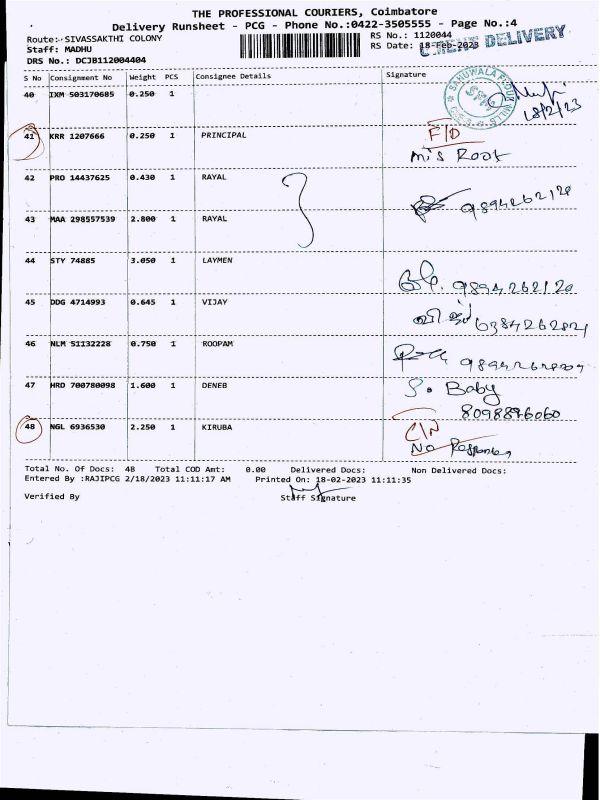 THE PROFESSIONAL COURIERS, Coimbatore
Delivery Runsheet - PCG - Phone No.:0422-3505555 - Page No.:4
Route: SIVASSAKTHI COLONY RS No.: 1120044
Staff: MADHU RS Date: 18-Feb-2023 DELIVERY
DRS No.: DCJB112004404
S No Consignment No Weight PCS Consignee Details Signature
40 IXM 503170685 0.250 1
18/2/23
41 KRR 1207666 0.250 1 PRINCIPAL F/D
mis Root
42 PRO 14437625 0.430 1 RAYAL
9894262120
43 MAA 298557539 2.800 1 RAYAL
44 STY 74885 3.050 1 LAYMEN
9894262120
45 DDG 4714993 0.645 1 VIJAY
46 NLM 51132228 0.750 1 ROOPAM
47 HRD 700780098 1.600 1 DENEB S. Baby
8098896060
48 NGL 6936530 2.250 1 KIRUBA C/N
No Response
Total No. Of Docs: 48 Total COD Amt: 0.00 Delivered Docs: Non Delivered Docs:
Entered By :RAJIPCG 2/18/2023 11:11:17 AM Printed On: 18-02-2023 11:11:35
Verified By Staff Signature